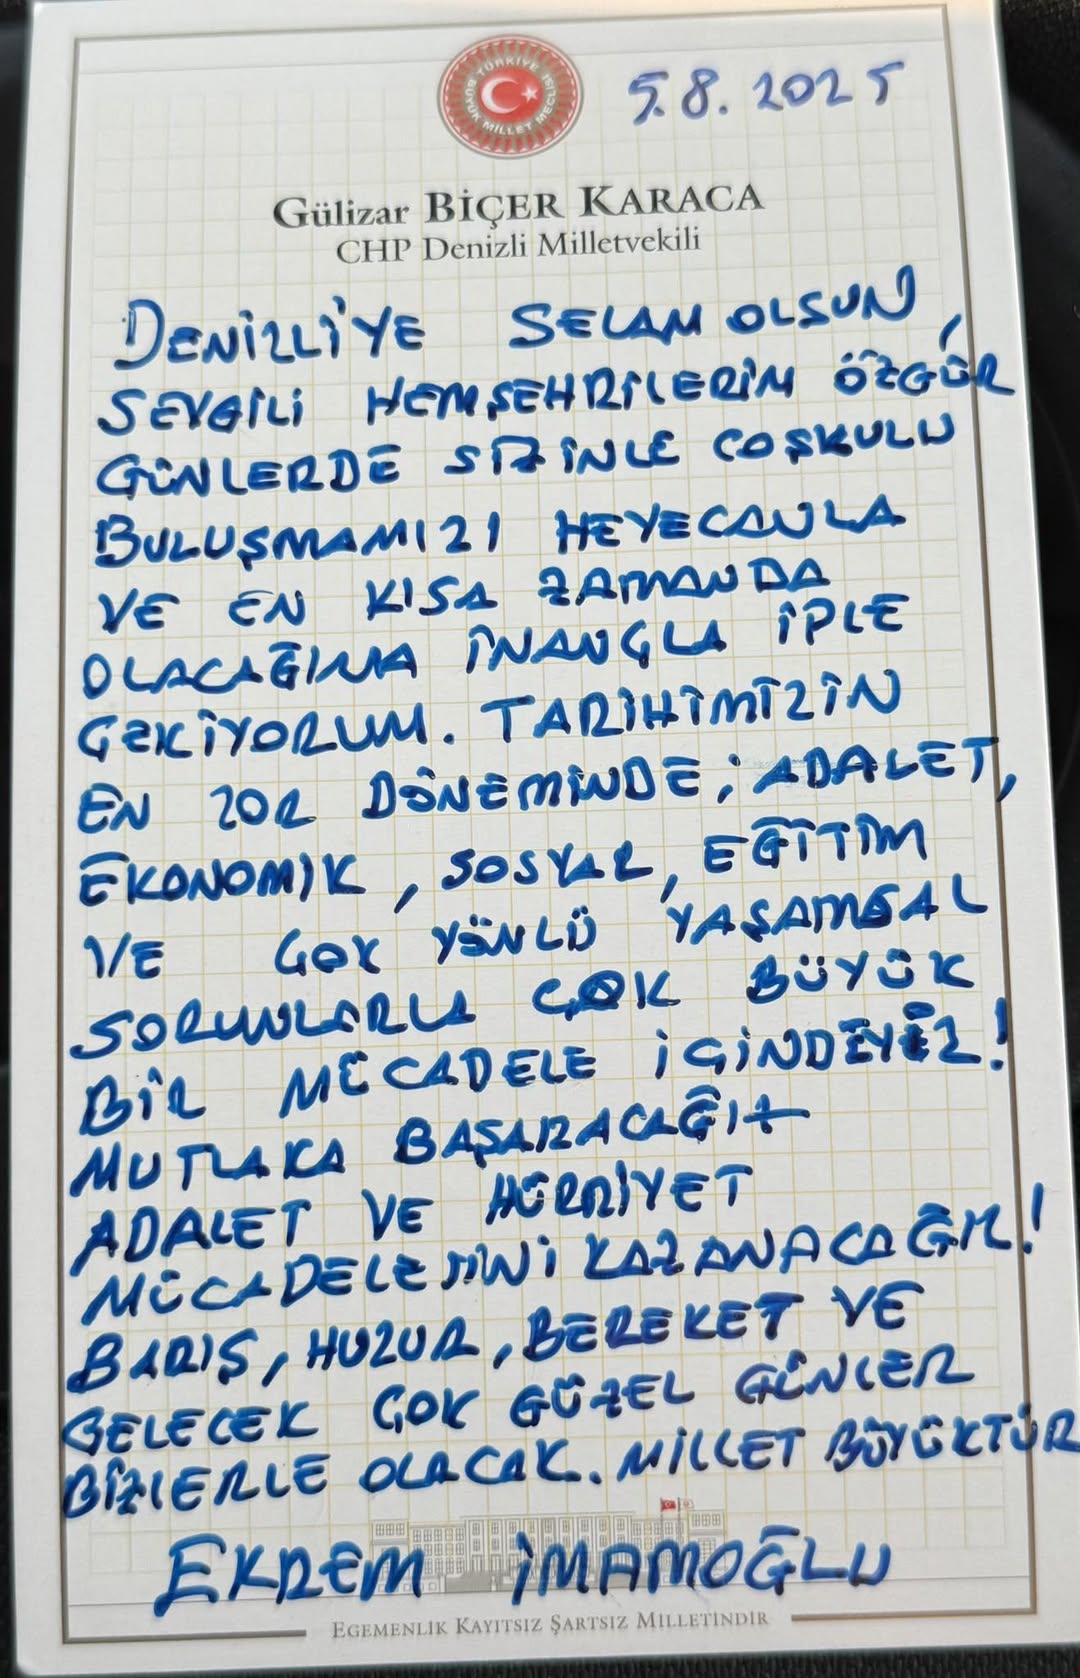 TÜRKİYE BÜYÜK MİLLET MECLİSİ
5.8.2025
Gülizar BİÇER KARACA
CHP Denizli Milletvekili
DENİZLİ'YE SELAM OLSUN,
SEVGİLİ HEMŞEHRİLERİM ÖZGÜR
GÜNLERDE SİZİNLE COŞKULU
BULUŞMAMIZI HEYECANLA
VE EN KISA ZAMANDA
OLACAĞINA İNANÇLA İPLE
ÇEKİYORUM. TARİHİMİZİN
EN ZOR DÖNEMİNDE; ADALET,
EKONOMİK, SOSYAL, EĞİTİM
VE ÇOK YÖNLÜ YAŞAMSAL
SORUNLARLA ÇOK BÜYÜK
BİR MÜCADELE İÇİNDEYİZ!
MUTLAKA BAŞARACAĞIZ
ADALET VE HÜRRİYET
MÜCADELESİNİ KAZANACAĞIZ!
BARIŞ, HUZUR, BEREKET VE
GELECEK ÇOK GÜZEL GÜNLER
BİZLERLE OLACAK. MİLLET BÜYÜKTÜR
EKREM İMAMOĞLU
EGEMENLİK KAYITSIZ ŞARTSIZ MİLLETİNDİR